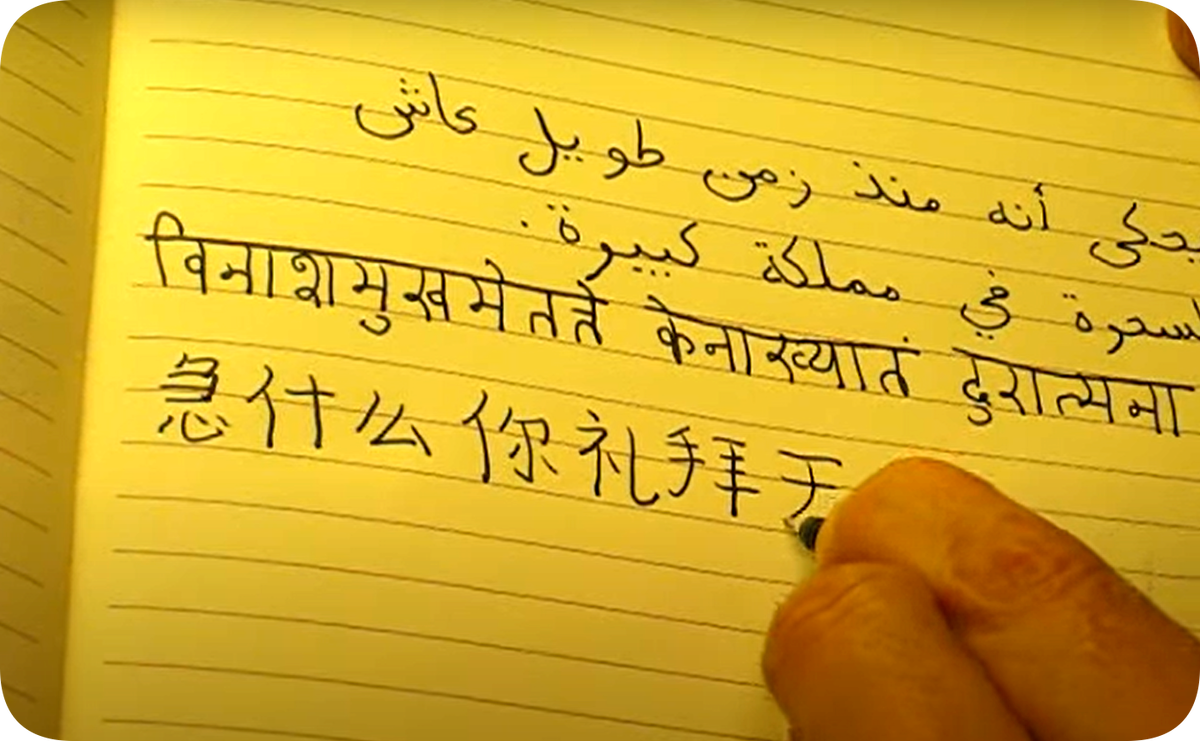 أنه منذ زمن طويل عاش
في مملكة كبيرة.
विनाशमुखमेतत्ते केनाख्यातं दुरात्मना
急什么你礼拜天